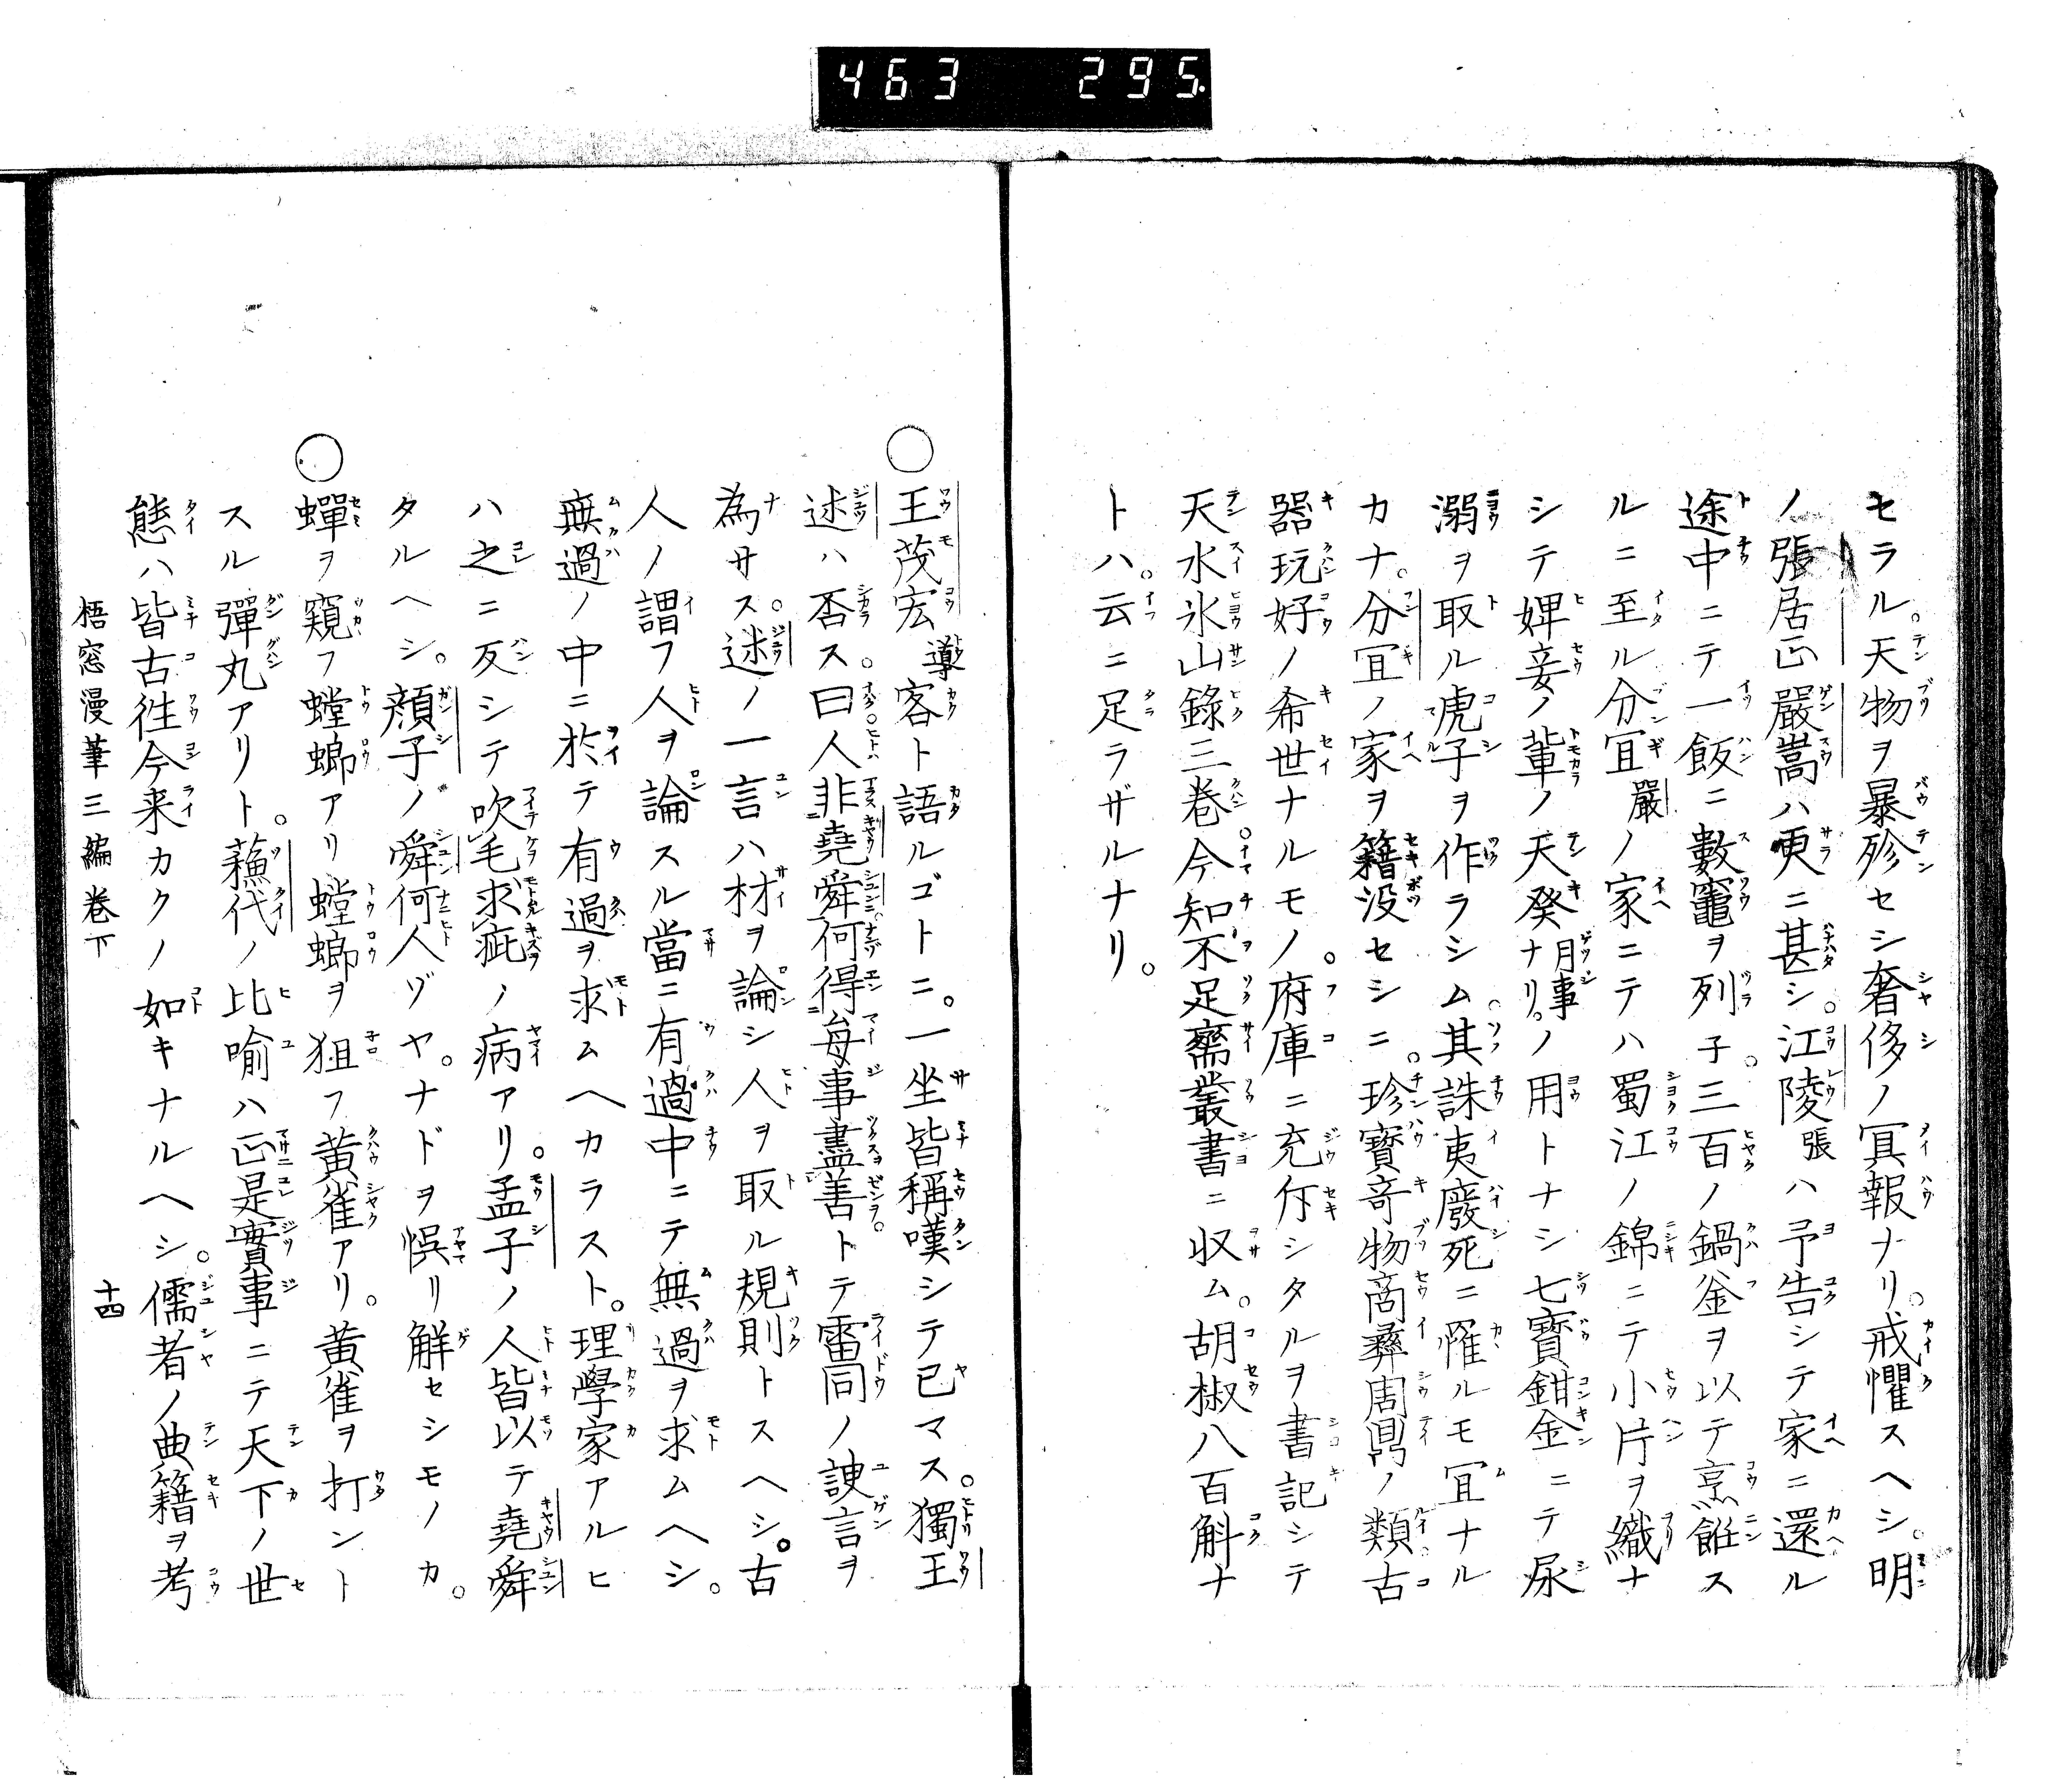 463 295.
セラル。天物ヲ暴殄セシ奢侈ノ冥報ナリ。戒懼スヘシ。明
ノ張居正嚴嵩ハ更ニ甚シ。江陵張ハ予告シテ家ニ還ル
途中ニテ一飯ニ數竈ヲ列子。三百ノ鍋釜ヲ以テ烹飪ス
ルニ至ル分宜嚴ノ家ニテハ蜀江ノ錦ニテ小片ヲ織ナ
シテ婢妾ノ輩ノ天癸月事ナリ。ノ用トナシ七寶鉗金ニテ尿
溺ヲ取ル虎子ヲ作ラシム。其誅夷廢死ニ罹ルモ宜ナル
カナ。分宜ノ家ヲ籍没セシニ。珍寶竒物商彝周鼎ノ類古
器玩好ノ希世ナルモノ。府庫ニ充斥シタルヲ書記シテ
天水氷山錄三卷。今知不足齋叢書ニ収ム。胡椒八百斛ナ
トハ。云ニ足ラザルナリ。
〇王茂宏導客ト語ルゴトニ。一坐皆稱嘆シテ已マス。獨王
述ハ否ス。曰人非堯舜何得每事盡善トテ雷同ノ諛言ヲ
為サス。述ノ一言ハ材ヲ論シ人ヲ取ル規則トスヘシ。古
人ノ謂フ人ヲ論スル當ニ有過中ニテ無過ヲ求ムヘシ。
無過ノ中ニ於テ有過ヲ求ムヘカラスト。理學家アルヒ
ハ之ニ反シテ吹毛求疵ノ病アリ。孟子ノ人皆以テ堯舜
タルヘシ。顔子ノ舜何人ゾヤ。ナドヲ悞リ解セシモノカ。
〇蟬ヲ窺フ螳螂アリ螳螂ヲ狙フ黄雀アリ。黄雀ヲ打ント
スル彈丸アリト。蘓代ノ比喻ハ正是實事ニテ天下ノ世
態ハ皆古徃今来カクノ如キナルヘシ。儒者ノ典籍ヲ考
梧窓漫筆三編卷下 十四